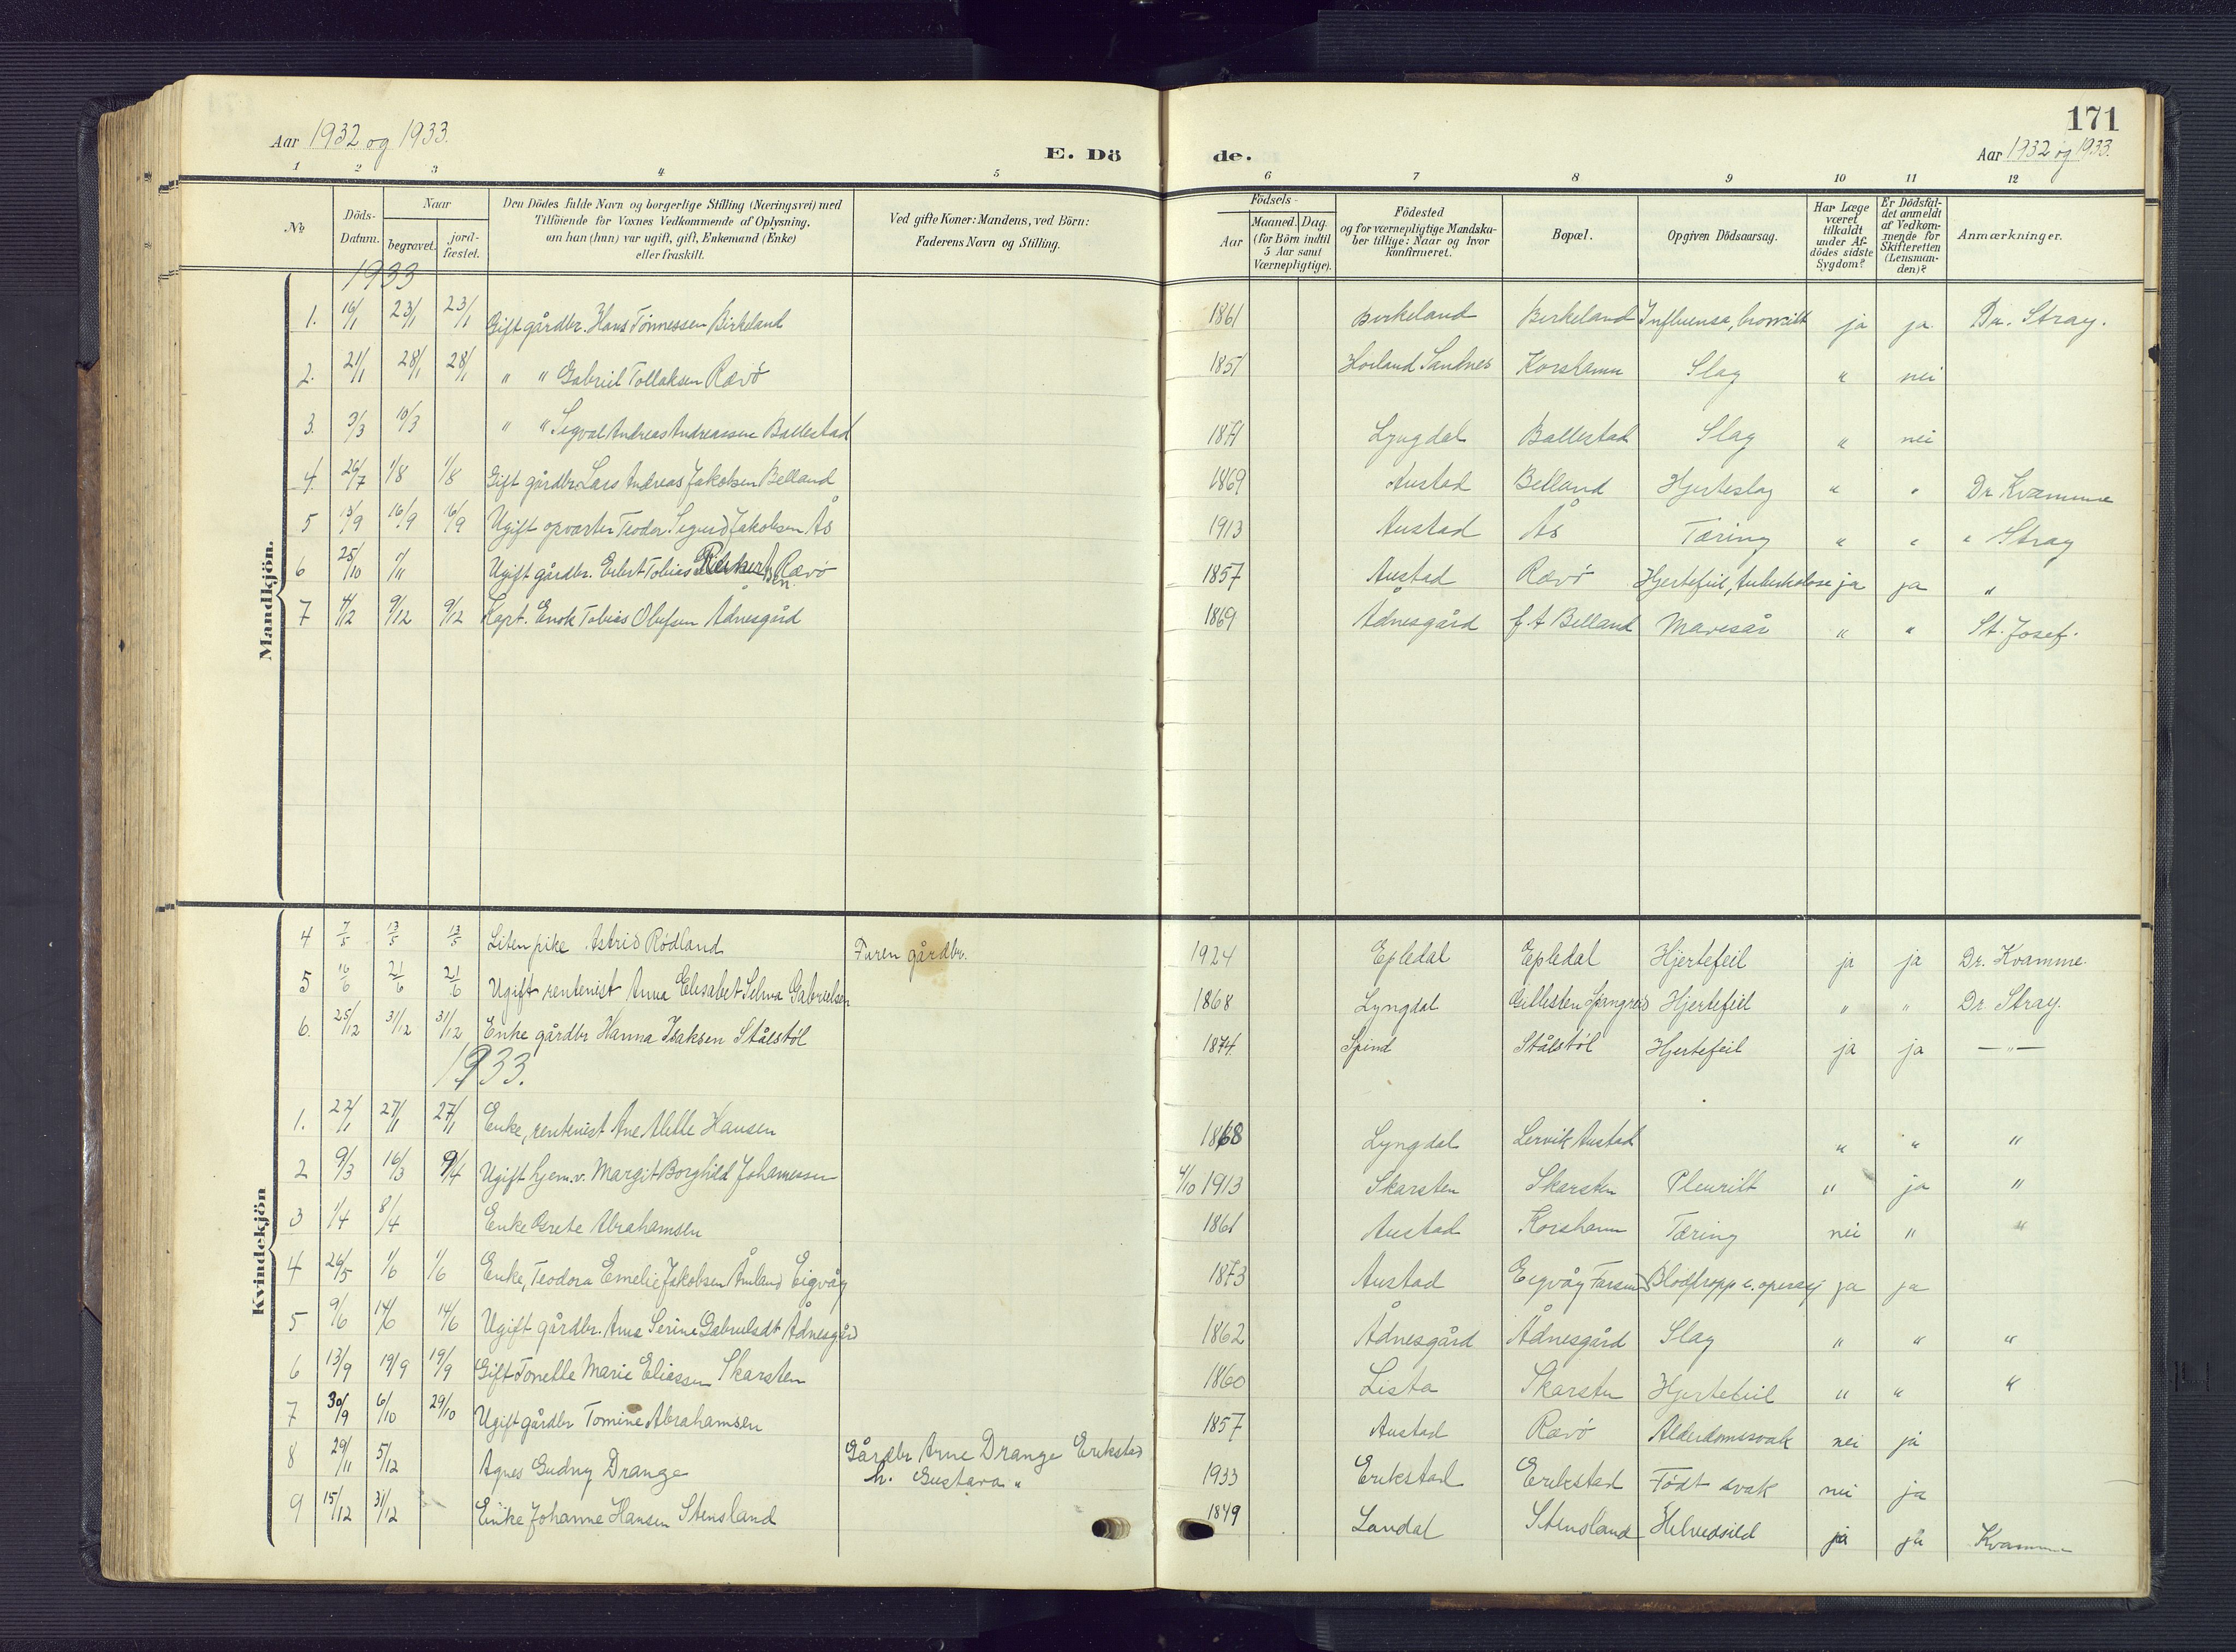 171
Aar 1932 og 1933.
E. Dö
de.
Aar 1932 og 1933.
1 2 3 4 5 6 7 8 9 10 11 12
No
Döds-Datum.
Naar
begravet.
jord-fæstet.
Den Dödes fulde Navn og borgerlige Stilling (Næringsvei) med
Tilföiende for Voxnes Vedkommende af Oplysning,
om han (hun) var ugift, gift, Enkemand (Enke)
eller fraskilt.
Ved gifte Koner: Mandens, ved Börn:
Faderens Navn og Stilling.
Födsels-
Aar
Maaned. Dag.
(for Börn indtil
5 Aar samt
Værnepligtige).
Födested
og for værnepligtige Mandska-
ber tillige: Naar og hvor
konfirmeret.
Bopæl.
Opgiven Dödsaarsag.
Har Læge
været
tilkaldt
under Af-
dödes sidste
Sygdom?
Er Dödsfal-
det anmeldt
af Vedkom-
mende for
Skifteretten
(Lensman-
den)?
Anmærkninger.
Mandkjön.
1933
1. 16/1 23/1 23/1 Gift gårdbr. Hans Tönnessen Birkeland 1861 Birkeland Birkeland Influensa, bronkitt ja ja Dr. Stray.
2. 21/1 28/1 28/1 " " Gabriel Tollaksen Rævö 1851 Sandnes Korshamn Slag " nei
3. 3/3 10/3 " " Sigval Andreas Andreassen Ballestad 1871 Lyngdal Ballestad Slag " nei
4. 26/7 1/8 1/8 Gift gårdbr Lars Andreas Jakobsen Belland 1869 Austad Belland Hjerteslag " " Dr Kvamme
5 13/9 16/9 16/9 Ugift opvarter Teodor Sigurd Jakobsen Ås 1913 Austad Ås Tæring " " " Stray
6 25/10 1/11 Ugift gårdbr. Tobias Rævö 1857 Austad Rævö Hjertefeil, tuberkulose ja ja "
7 4/12 9/12 9/12 Kapt. Enok Tobias Olufsen Ådnesgård 1869 Ådnesgård f A Belland Mavesår " " St. Josef.
Kvindekjön
4 7/5 13/5 13/5 Liten pike Astrid Rödland Faren gårdbr. 1924 Epledal Epledal Hjertefeil ja ja Dr. Kvamme.
5 16/6 21/6 21/6 Ugift rentenist Anna Elisabet Selma Gabrielsen 1868 Lyngdal Gillesten Spangreid Hjertefeil " " Dr. Stray.
6. 25/12 31/12 31/12 Enke gårdbr Hanna Isaksen Stålstöl 1874 Spind Stålstöl Hjertefeil ja ja — " —
1933.
1. 22/1 27/1 27/1 Enke, rentenist Ane Alette Hansen 1868 Lyngdal Lervik Austad " " "
2 9/3 16/3 9/4 Ugift hjem.v. Margit Borghild Johannessen 4/10 1913 Skarsten Skarsten Pleuritt " ja "
3 1/4 8/4 Enke Grete Abrahamsen 1861 Austad Korshamn Tæring nei " "
4 26/5 1/6 1/6 Enke, Teodora Emelie Jakobsen Åmland Eigvåg 1873 Austad Eigvåg Farsund Blodpropp e. operasj ja ja
5 9/6 14/6 14/6 Ugift gårdbr. Ana Serine Gabrielsdt Ådnesgård 1862 Ådnesgård Ådnesgård Slag " " "
6 13/9 19/9 19/9 Gift Tonette Marie Eliassen Skarsten 1860 Lista Skarsten Hjertefeil " " "
7 30/9 6/10 29/10 Ugift gårdbr Tomine Abrahamsen 1857 Austad Rævö Alderdomssvak nei ja
8 29/11 5/12 Agnes Gudny Drange Gårdbr Arne Drange Erikstad
h. Gustava " 1933 Erikstad Erikstad Födt svak nei ja
9 15/12 31/12 Enke Johanne Hansen Stensland 1849 Laudal Stensland Helvedsild ja ja Kvamme